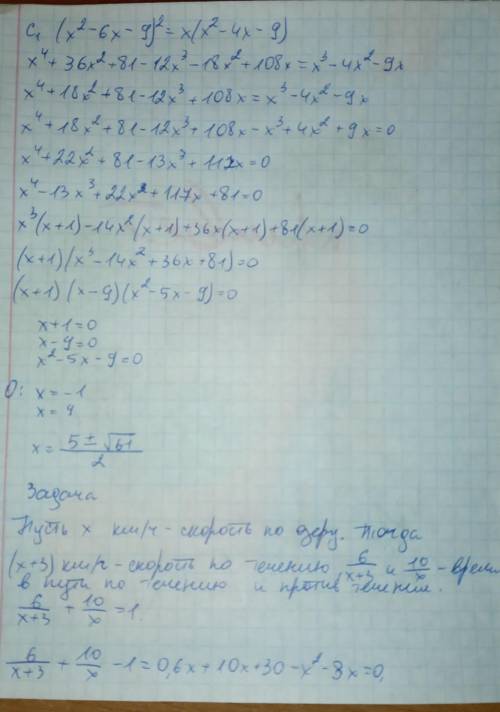 С₁ (x²-6x-9)²=x(x²-4x-9)
x⁴+36x²+81-12x³-18x²+108x=x³-4x²-9x
x⁴+18x²+81-12x³+108x=x³-4x²-9x
x⁴+18x²+81-12x³+108x-x³+4x²+9x=0
x⁴+22x²+81-13x³+117x=0
x⁴-13x³+22x²+117x+81=0
x³(x+1)-14x²(x+1)+36x(x+1)+81(x+1)=0
(x+1)(x³-14x²+36x+81)=0
(x+1)(x-9)(x²-5x-9)=0
x+1=0
x-9=0
x²-5x-9=0
О: x=-1
x=9
x=\frac{5±√61}{2}
Задача
Пусть x км/ч-скорость по озеру. Тогда
(x+3) км/ч-скорость по течению \frac{6}{x+3} и \frac{10}{x}-время
в пути по течению и против течения.
\frac{6}{x+3}+\frac{10}{x}=1.
\frac{6}{x+3}+\frac{10}{x}-1=0, 6x+10x+30-x²-3x=0,